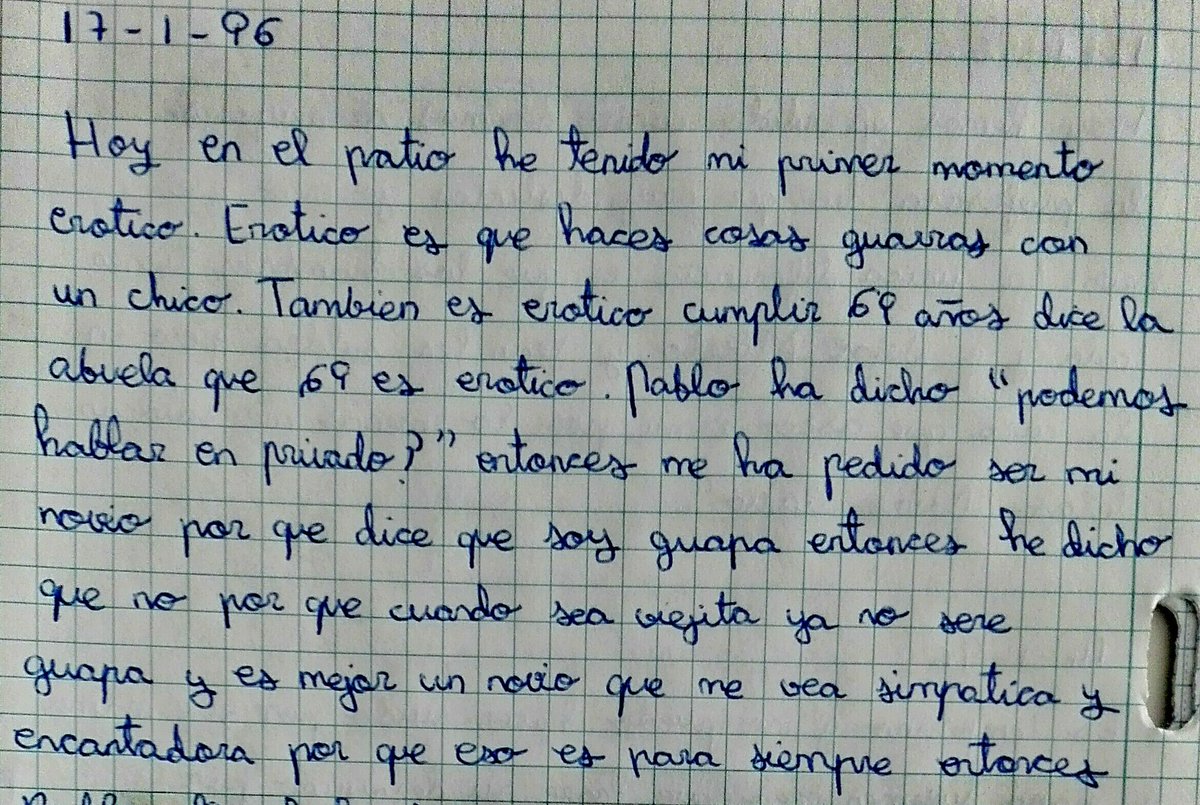 17-1-96
Hoy en el patio he tenido mi primer momento
erotico. Erotico es que haces cosas guarras con
un chico. Tambien es erotico cumplir 69 años dice la
abuela que 69 es erotico. Pablo ha dicho "podemos
hablar en privado?" entonces me ha pedido ser mi
novio por que dice que soy guapa entonces he dicho
que no por que cuando sea viejita ya no sere
guapa y es mejor un novio que me vea simpatica y
encantadora por que eso es para siempre entonces